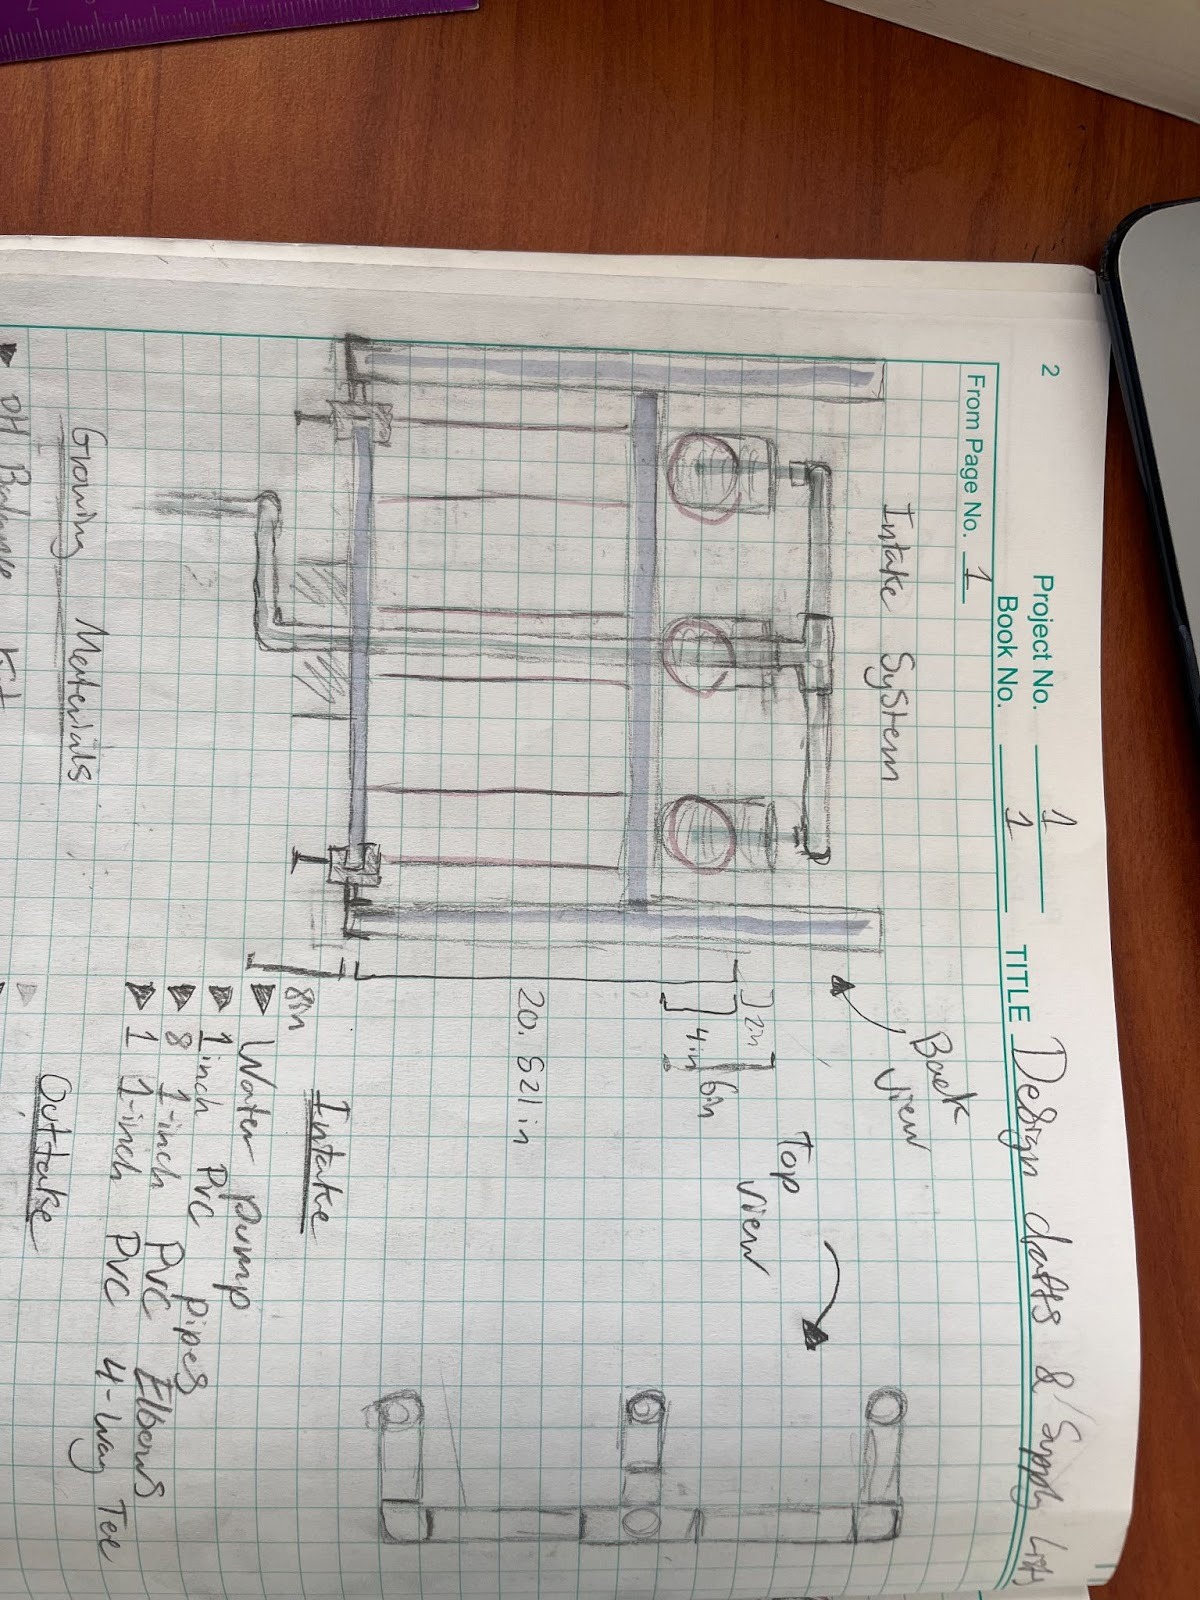 2
Project No. 1
Book No. 1
TITLE Design drafts & Supply Lists
From Page No. 1
Intake System
Back
view
Top
view
2in
4in
6in
20.821in
8in
Intake
Water pump
1 inch PVC pipes
8 1-inch PVC Elbows
1 1-inch PVC 4-way Tee
Growing Materials
Outtake
pH Balance